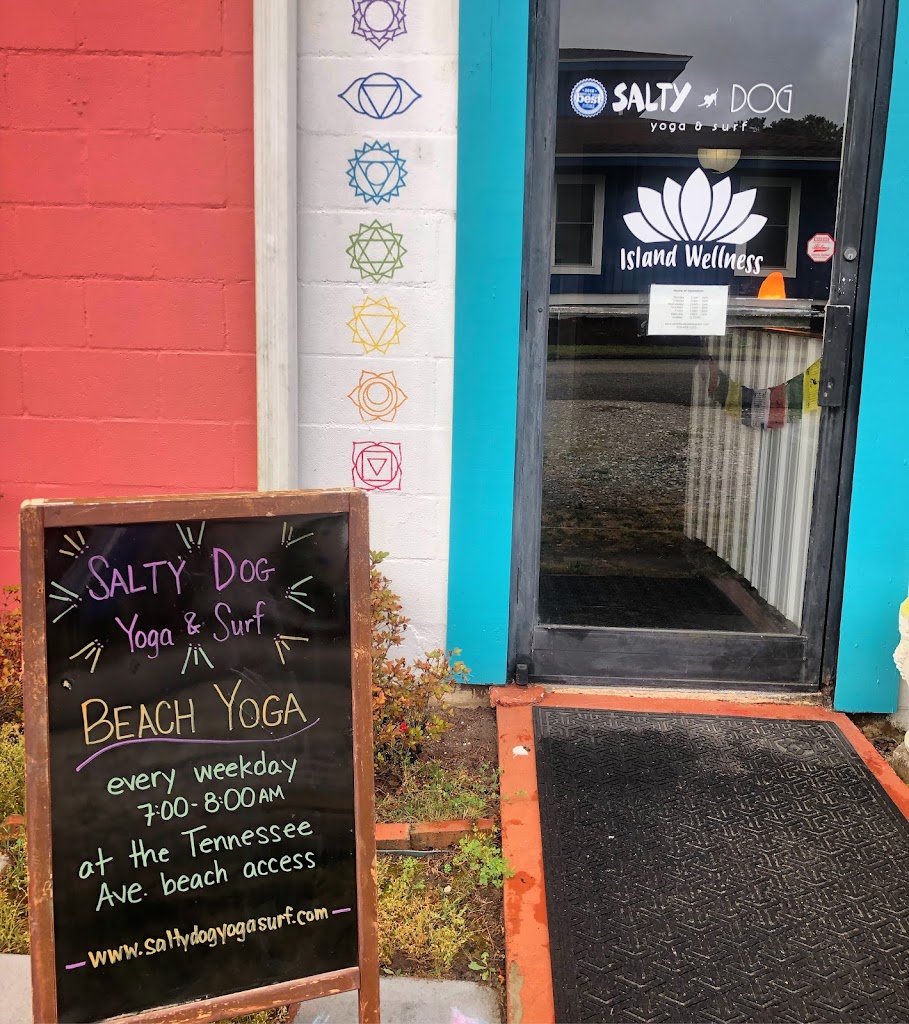 best
SALTY DOG
yoga & surf
Island Wellness
SALTY DOG
Yoga & Surf
BEACH YOGA
every weekday
7:00-8:00AM
at the Tennessee
Ave. beach access
www.saltydogyogasurf.com